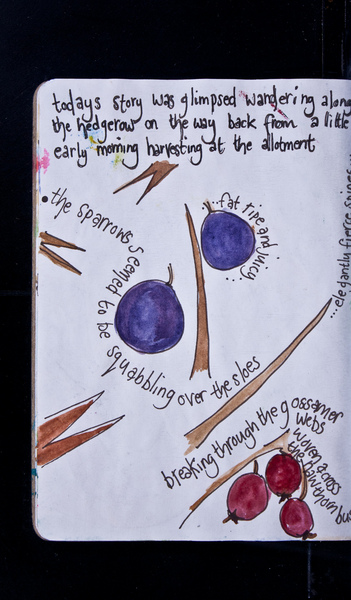 todays story was glimpsed wandering along
the hedgerow on the way back from a little
early morning harvesting at the allotment
the sparrows seemed to be squabbling over the sloes
...fat ripe and juicy...
...elegantly fierce spines...
breaking through the gossamer
webs
woven across
the hawthorn